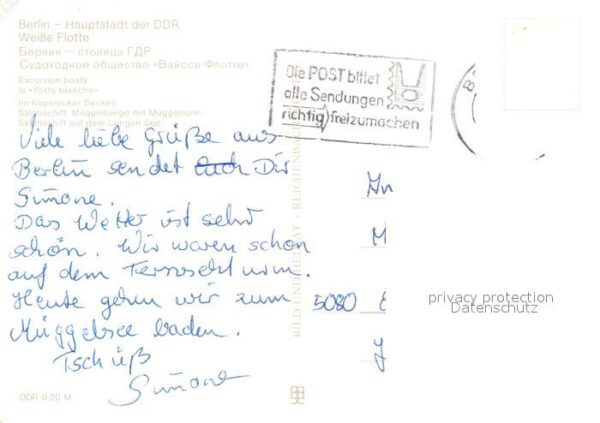 Berlin – Hauptstadt der DDR
Weiße Flotte
Берлин – столица ГДР
Судоходное общество «Вайссе Флотте»
Excursion boats
la «flotte blanche»
Im Köpenicker Becken
Salonschiff, Müggelberge mit Müggelturm
Salonschiff auf dem Langen See
Die POST bittet
alle Sendungen
richtig freizumachen
Viele liebe Grüße aus
Berlin sendet Euch Dir
Simone.
Das Wetter ist sehr
schön. Wir waren schon
auf dem Fernsehturm.
Heute gehn wir zum
Müggelsee baden.
Tschüß
Simone
5080 E
privacy protection
Datenschutz
DDR 0,20 M
BILD UND HEIMAT REICHENBACH